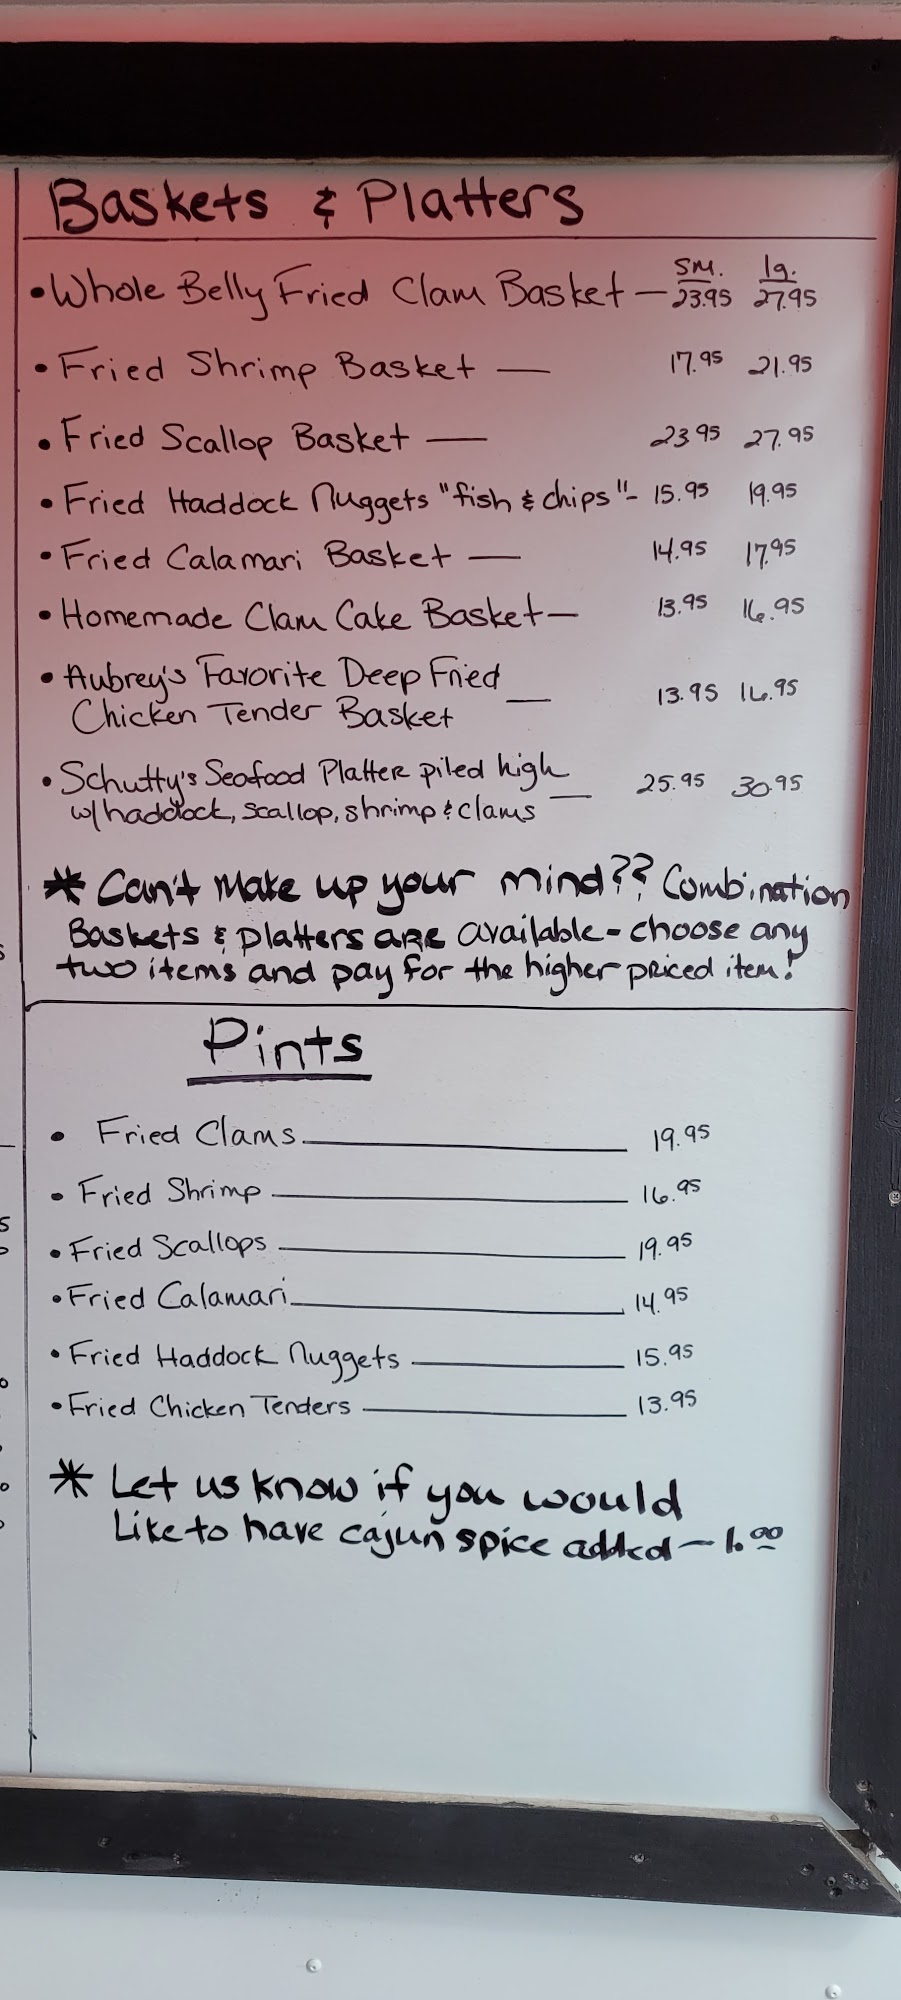 Baskets & Platters
SM. lg.
• Whole Belly Fried Clam Basket — 23.95 27.95
• Fried Shrimp Basket — 17.95 21.95
• Fried Scallop Basket — 23.95 27.95
• Fried Haddock Nuggets "fish & chips" - 15.95 19.95
• Fried Calamari Basket — 14.95 17.95
• Homemade Clam Cake Basket — 13.95 16.95
• Aubrey's Favorite Deep Fried
Chicken Tender Basket — 13.95 16.95
• Schutty's Seafood Platter piled high
w/haddock, scallop, shrimp & clams — 25.95 30.95
* Can't make up your mind?? Combination
Baskets & platters are available - choose any
two items and pay for the higher priced item!
Pints
• Fried Clams 19.95
• Fried Shrimp 16.95
• Fried Scallops 19.95
• Fried Calamari 14.95
• Fried Haddock Nuggets 15.95
• Fried Chicken Tenders 13.95
* Let us know if you would
Like to have cajun spice added — 1.00